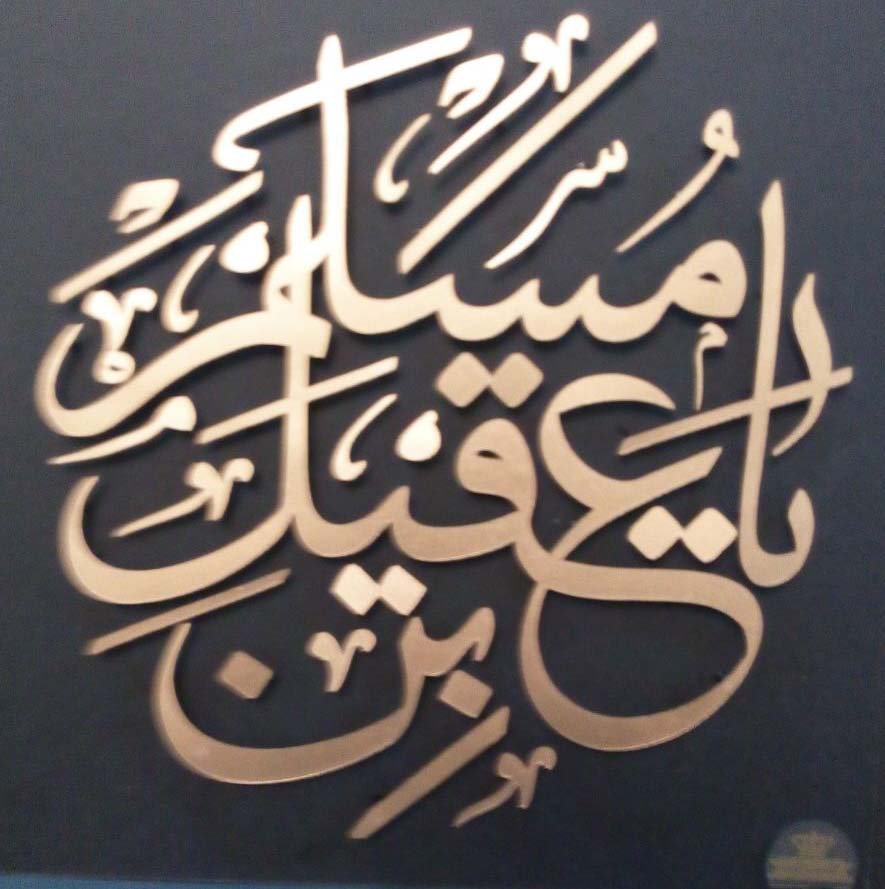 يا مُسلم بنِ عقيلِ